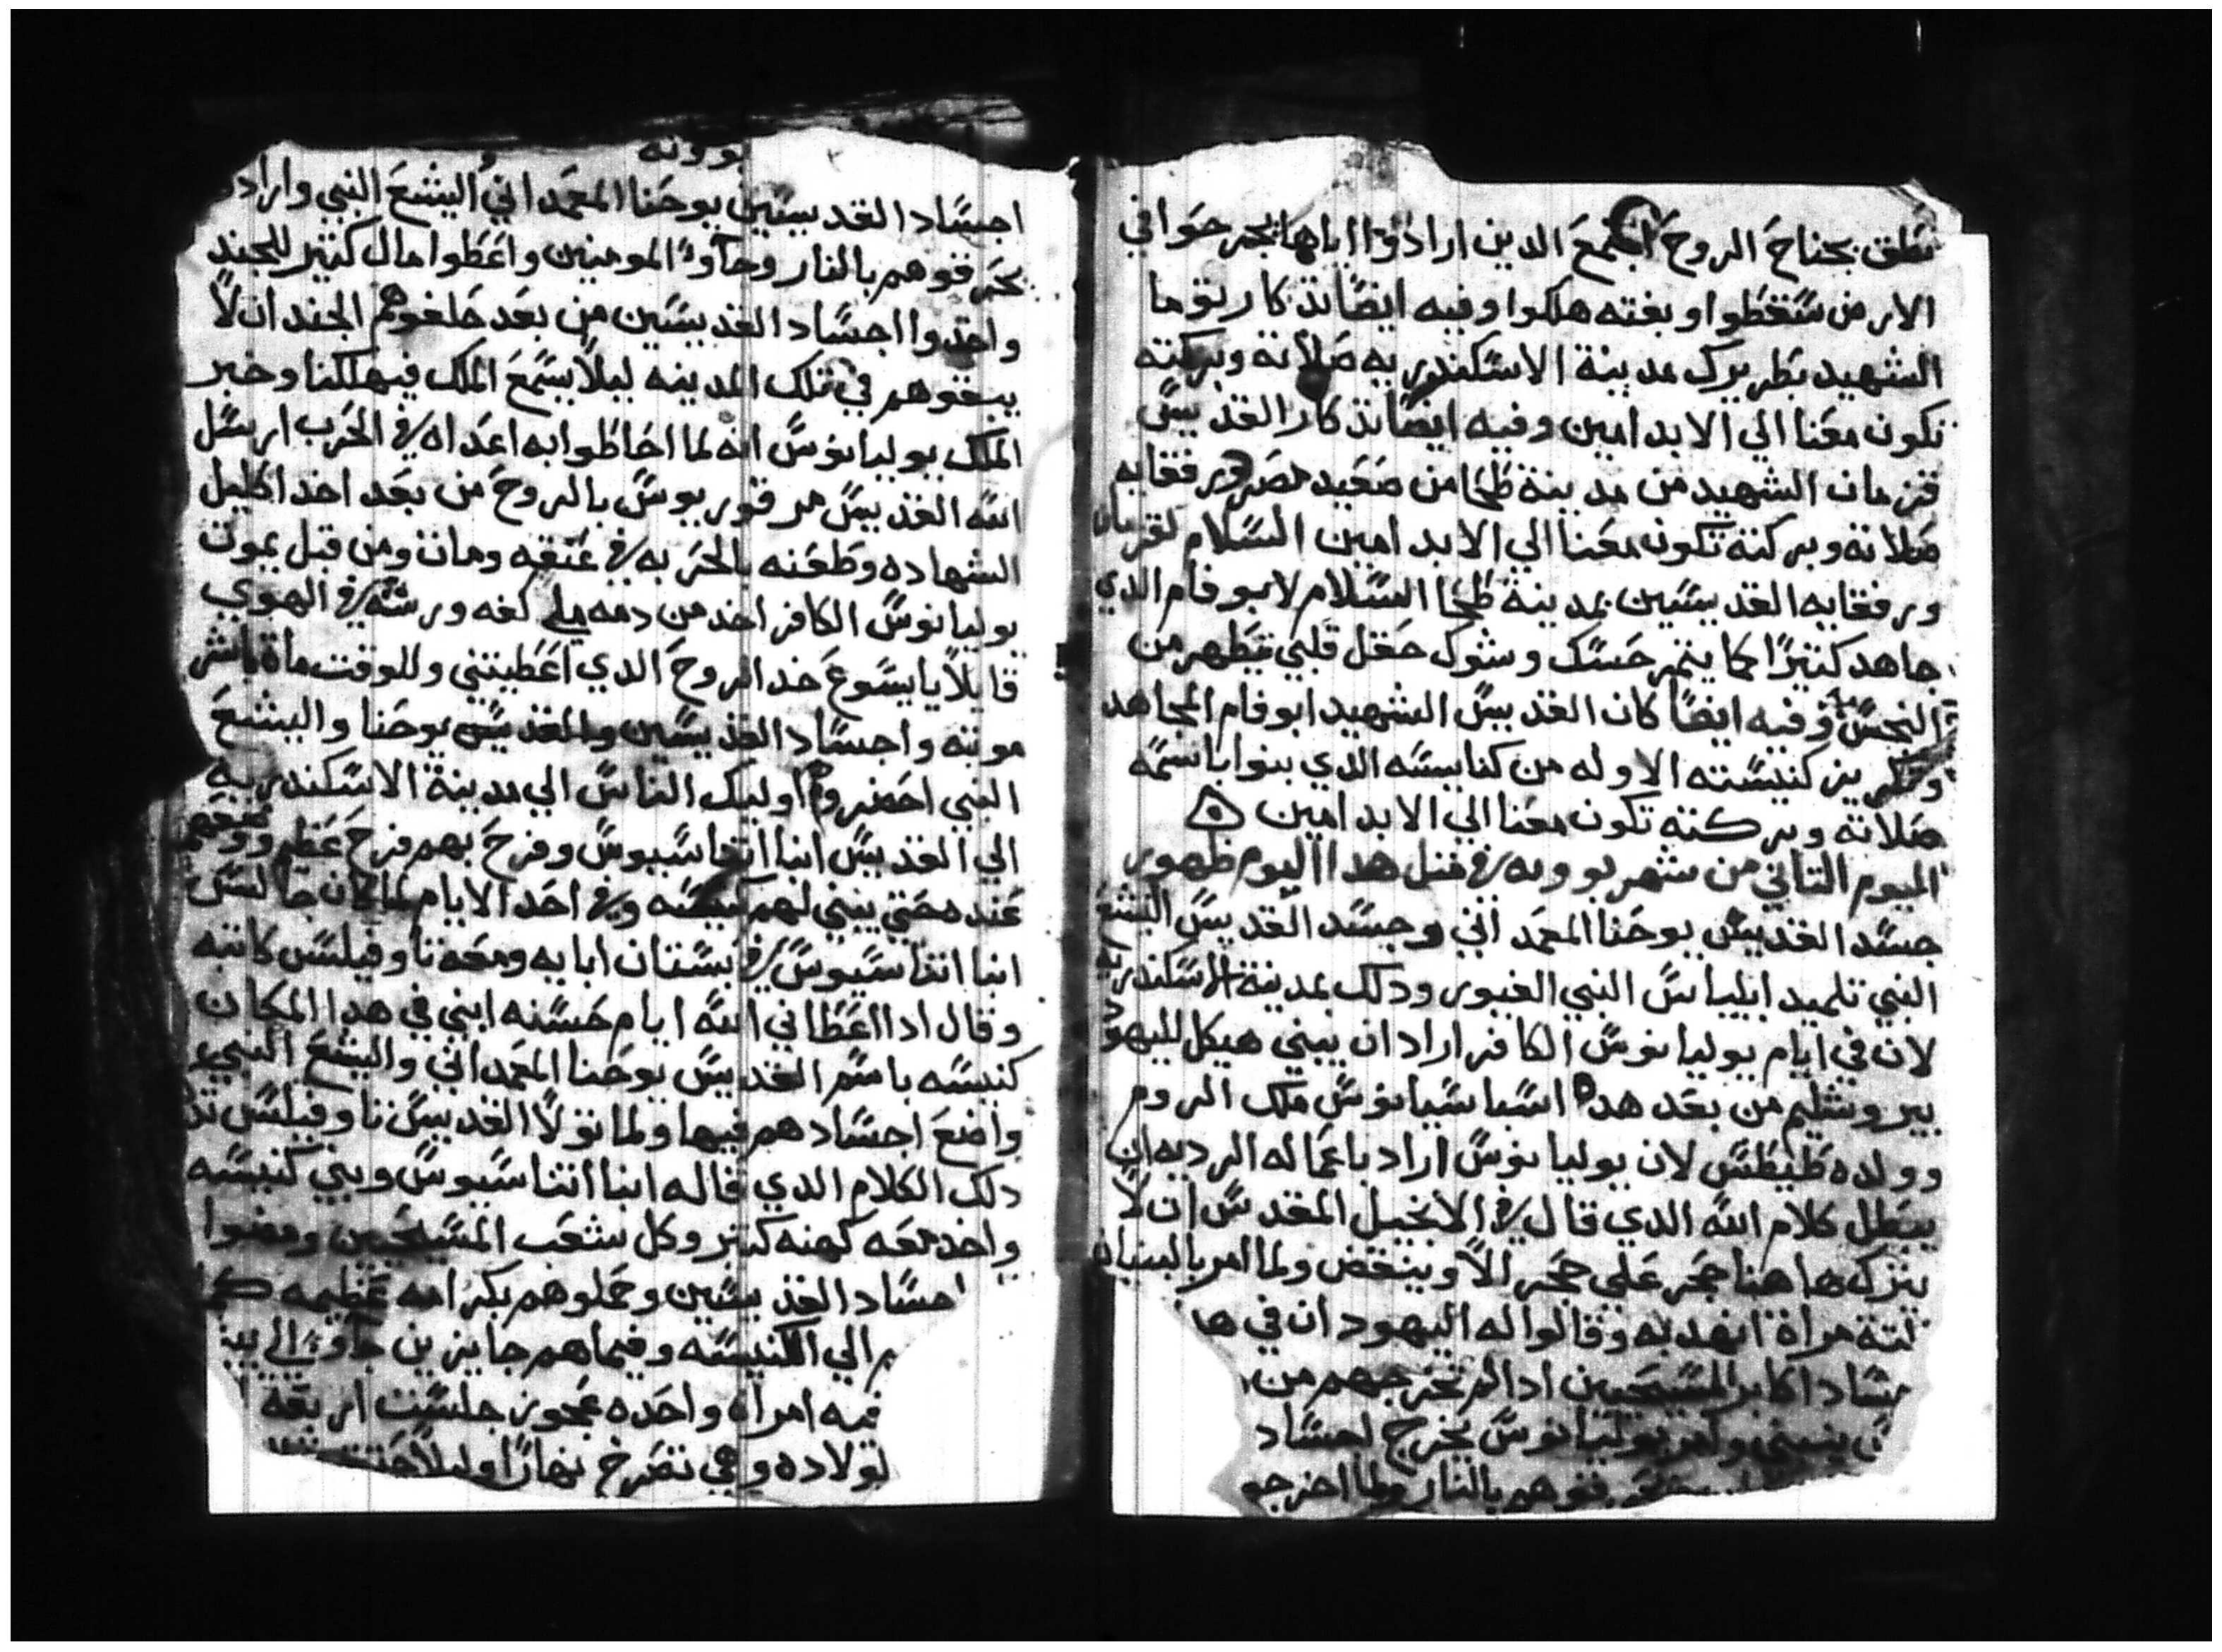 تطق بجناح الروح اجمع الدين ارادوا اباها بحر حوا في
الارض سقطوا وبغته هلكوا وفيه ايضا تدكار توما
الشهيد بطريرك مدينة الاسكندريه صلاته وبركته
تكون معنا الي الابد امين وفيه ايضا تدكار القديس
قزمان الشهيد من مدينة طحا من صعيد مصر ورفقايه
صلاته وبركته تكون معنا الي الابد امين السلام لقزمان
ورفقايه القديسين بمدينة طحا السلام لابو فام الدي
جاهد كتيرا كما ينمر حسك وشوك حقل قلبي يتطهر من
النجس وفيه ايضا كان القديس الشهيد ابو فام المجاهد
وتكريز كنيسته الاوله من كنايسه الدي بنوا باسمه
صلاته وبركته تكون معنا الي الابد امين
اليوم التاني من شهر بوونه في متل هدا اليوم ظهور
جسد القديس يوحنا المعمداني وجسد القديس اليشع
النبي تلميد ايلياس النبي الغيور ودلك بمدينة الاسكندريه
لان في ايام يوليانوس الكافر اراد ان يبني هيكل لليهود
بيروشليم من بعد هده اسباسيانوس ملك الروم
وولده طيطس لان يوليانوس اراد باعماله الرديه ان
يبطل كلام الله الدي قال في الانجيل المقدس ان لا
يترك هاهنا حجر على حجر الا وينقض ولما امر بالبنيان
تلتة مراة انهدبه وقالوا له اليهود ان في ها
ساد اكابر المسيحيين ادا لم تخرجهم من
يبني وامر يوليانوس يخرج اجساد
يحرقوهم بالنار ولما اخرجو
بوونه
اجساد القديسين يوحنا المعمداني اليشع النبي واراد
يحرقوهم بالنار وجاوا المومنين واعطوا مال كتير للجند
واخدوا اجساد القديسين من بعد حلفوهم الجند ان لا
يبقوهم في تلك المدينه ليلا يسمع الملك فيهلكنا وخبر
الملك يوليانوس انه لما احاطوا به اعداه في الحرب ارسل
الله القديس مرقوريوس بالروح من بعد اخد اكليل
الشهاده وطعنه بالحربه في عنقه ومات ومن قبل يموت
يوليانوس الكافر اخد من دمه ملي كفه ورشه في الهوي
قايلا يا يسوع خد الروح الدي اعطيتني وللوقت ماة باشر
موته واجساد القديسين والقديسي يوحنا واليشع
النبي احضروه اوليك الناس الي مدينة الاسكندريه
الي القديس ابنا اتناسيوس وفرح بهم فرح عظم ووضعهم
عند محتي يبني لهم كنيسه وفي احد الايام لما كان جالس
ابنا اتناسيوس في بستان ابايه ومعه تاوفيلس كاتبه
وقال ادا اعطاني الله ايام حسنه ابني في هدا المكان
كنيسه باسم القديس يوحنا المعمداني واليشع النبي
واضع اجسادهم فيها ولما تولا القديس تاوفيلس تد
دلك الكلام الدي قاله ابنا اتناسيوس وبني كنيسه
واخد معه كهنه كتير وكل شعب المسيحيين ومضوا
اجساد القديسين وحملوهم بكرامه عظيمه
الي الكنيسه وفيما هم جايزين جاوا الي بيت
فيه امراه واحده عجوز جلست اربعة
لولاده وهي تصرخ نهارا وليلا